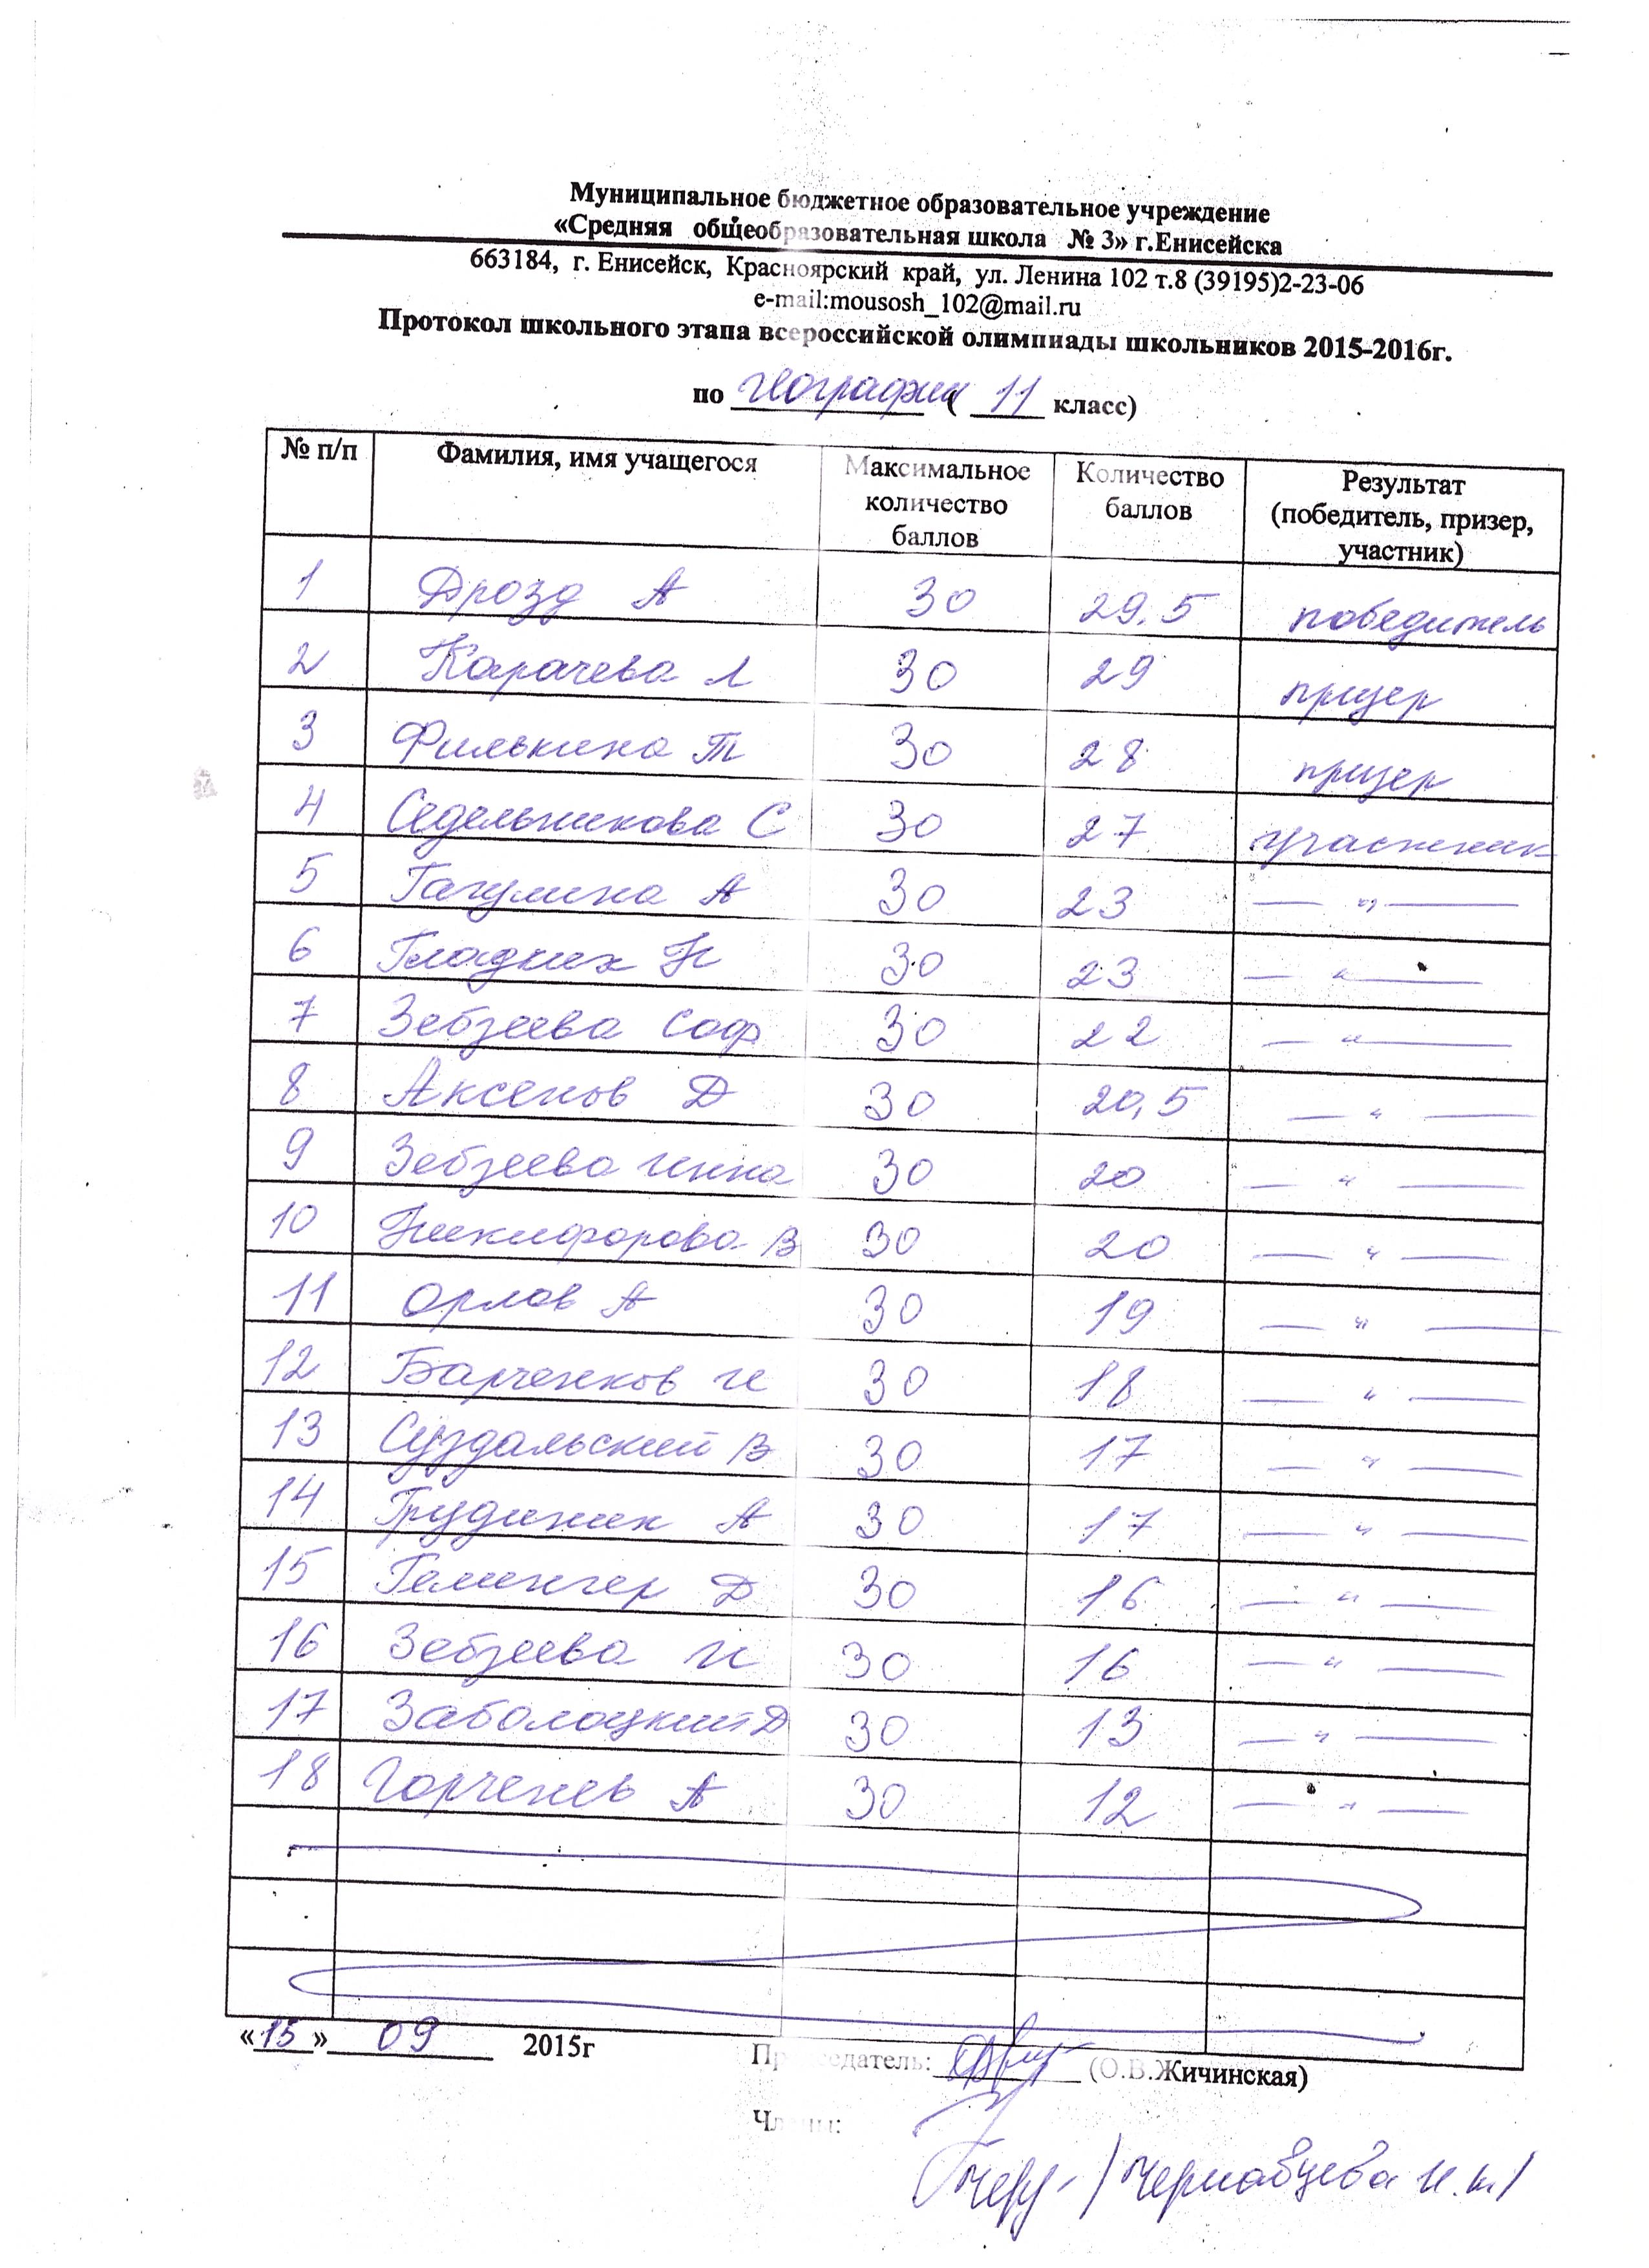 Муниципальное бюджетное образовательное учреждение
«Средняя общеобразовательная школа № 3» г.Енисейска
663184, г. Енисейск, Красноярский край, ул. Ленина 102 т.8 (39195)2-23-06
e-mail:mousosh_102@mail.ru
Протокол школьного этапа всероссийской олимпиады школьников 2015-2016г.
по географии ( 11 класс)
№ п/п Фамилия, имя учащегося Максимальное количество баллов Количество баллов Результат (победитель, призер, участник)
1 Дрозд А 30 29,5 победитель
2 Карачева Л 30 29 призер
3 Филькина Т 30 28 призер
4 Седельникова С 30 27 участник
5 Гагулина А 30 23 — " —
6 Гладких Н 30 23 — " —
7 Зебзеева Соф 30 22 — " —
8 Аксенов Д 30 20,5 — " —
9 Зебзеева Инна 30 20 — " —
10 Никифорова В 30 20 — " —
11 Орлов А 30 19 — " —
12 Барченков И 30 18 — " —
13 Суздальский В 30 17 — " —
14 Грудинин А 30 17 — " —
15 Д 30 16 — " —
16 Зебзеева И 30 16 — " —
17 Заболоцкий Д 30 13 — " —
18 Горченев А 30 12 — " —
«15» 09 2015г
Председатель: (О.В.Жичинская)
Члены: